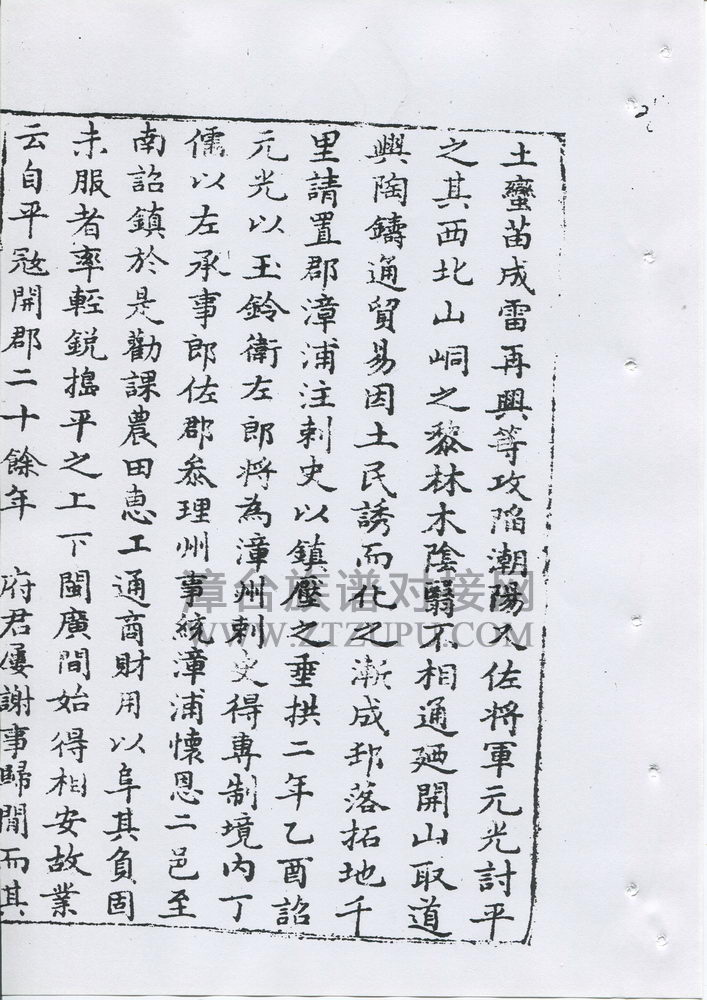 土蠻苗成雷再興等攻陷潮陽又佐將軍元光討平
之其西北山峒之黎林木陰翳不相通廼開山取道
興陶鑄通貿易因土民誘而化之漸成邨落拓地千
里請置郡漳浦注刺史以鎮壓之垂拱二年乙酉詔
元光以玉鈴衛左郎將為漳州刺史得專制境內丁
儒以左承事郎佐郡叅理州事統漳浦懷恩二邑至
南詔鎮於是勸課農田惠工通商財用以阜其負固
未服者率輕銳搗平之上下閩廣間始得相安故業
云自平冦開郡二十餘年 府君屢謝事歸閒而其
漳台族谱对接网
WWW.ZTZUPU.COM
2